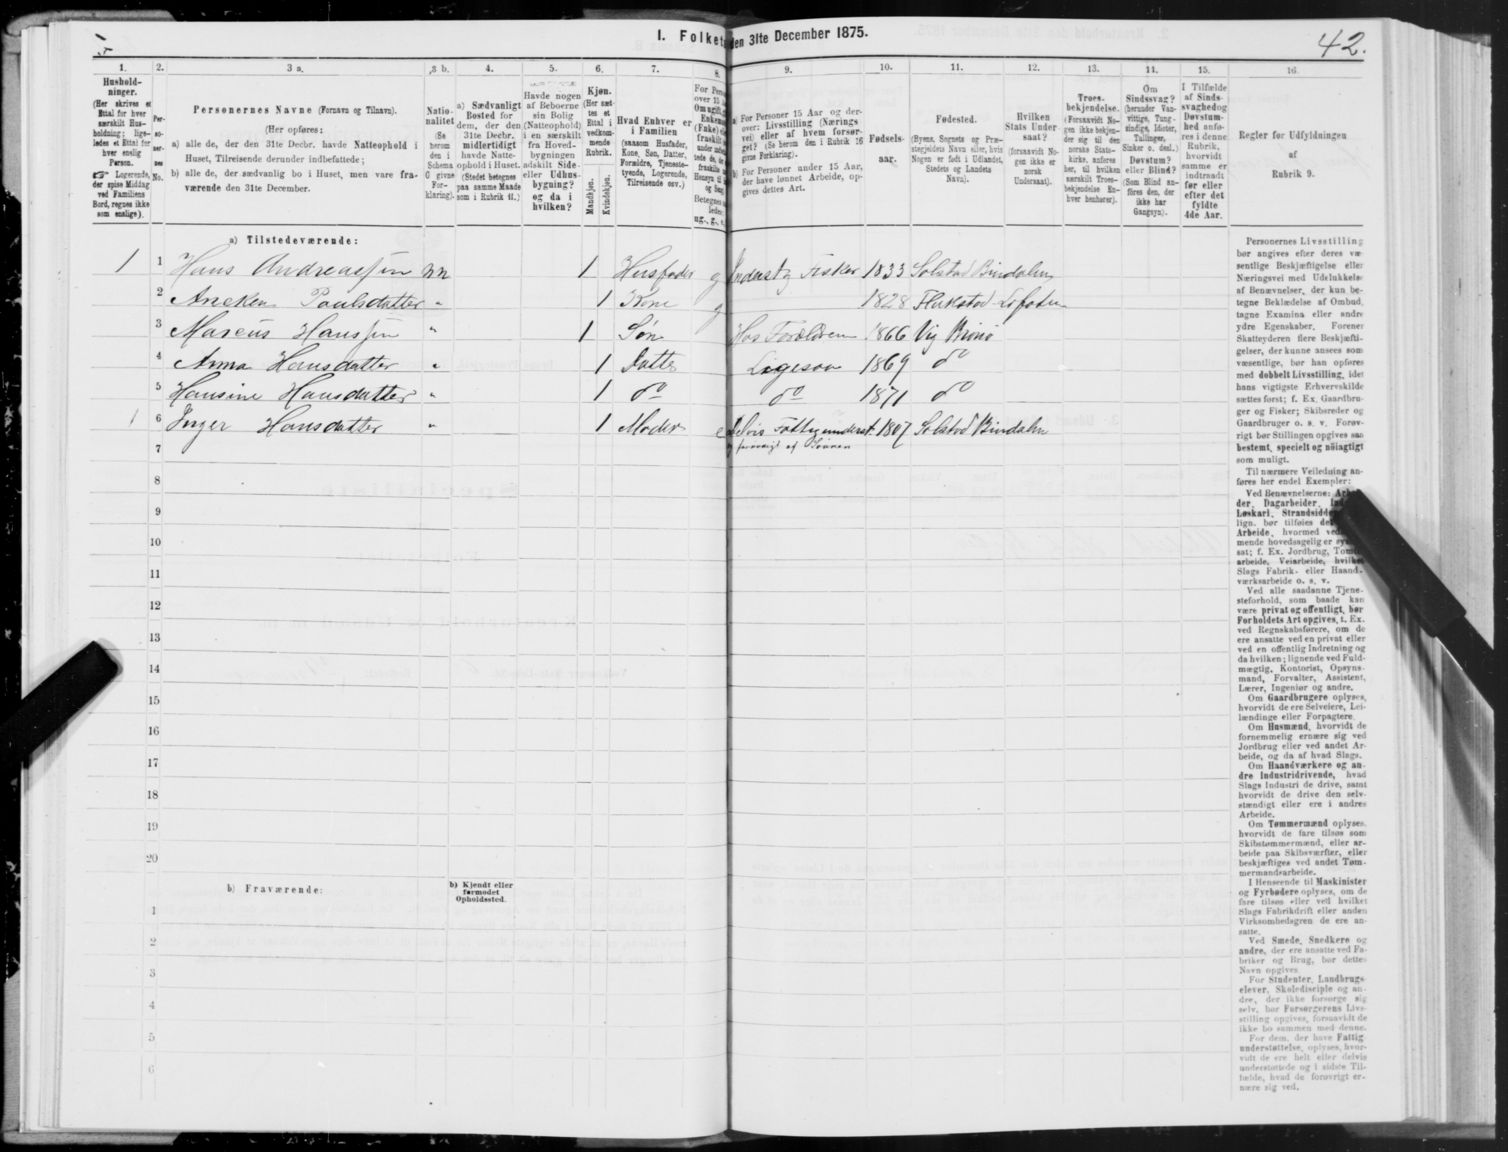 I. Folket den 31te December 1875.
42.
1. 2. 3 a. 3 b. 4. 5. 6. 7. 8. 9. 10. 11. 12. 13. 14. 15. 16.
Hushold-
ninger.
(Her skrives et
Ettal for hver
særskilt Hus-
holdning; lige-
ledes et Ettal for
hver enslig
Person.
☞ Logerende,
der spise Middag
ved Familiens
Bord, regnes ikke
som enslige).
Per-
so-
ner-
nes
No.
Personernes Navne (Fornavn og Tilnavn).
(Her opføres:
a) alle de, der den 31te Decbr. havde Natteophold i
Huset, Tilreisende derunder indbefattede;
b) alle de, der sædvanlig bo i Huset, men vare fra-
værende den 31te December.
Natio-
nalitet
(Se
herom
den i
Schema
O givne
For-
klaring).
a) Sædvanligt
Bosted for
dem, der den
31te Decbr.
midlertidigt
havde Natte-
ophold i Huset.
(Stedet betegnes
paa samme Maade
som i Rubrik 11.)
Havde nogen
af Beboerne
sin Bolig
(Natteophold)
i en særskilt
fra Hoved-
bygningen
adskilt Side-
eller Udhus-
bygning?
og da i
hvilken?
Kjøn.
(Her sæt-
tes et
Ettal i
vedkom-
mende
Rubrik.
Mandkjøn.
Kvindekjøn.
Hvad Enhver er
i Familien
(saasom Husfader,
Kone, Søn, Datter,
Forældre, Tjeneste-
tyende, Logerende,
Tilreisende osv.)
a) For Personer 15 Aar og der-
over: Livsstilling (Nærings
vei) eller af hvem forsør-
get? (Se herom den i Rubrik 16
givne Forklaring).
b) For Personer under 15 Aar,
der have lønnet Arbeide, op-
gives dettes Art.
Fødsels-
aar.
Fødested.
(Byens, Sognets og Præ-
stegjeldets Navn eller, hvis
Nogen er født i Udlandet,
Stedets og Landets
Navn).
Hvilken
Stats Under
saat?
(forsaavidt No-
gen ikke er
norsk
Undersaat).
Troes-
bekjendelse.
(Forsaavidt No-
gen ikke bekjen-
der sig til den
norske Stats-
kirke, anføres
her, til hvilken
særskilt Troes-
bekjendelse En-
hver henhører).
Om
Sindssvag?
(herunder Van-
vittige, Tung-
sindige, Idioter,
Tullinger,
Sinker o. desl.)
Døvstum?
eller Blind?
(Som Blind an-
føres den, der
ikke har
Gangsyn).
I Tilfælde
af Sinds-
svaghed og
Døvstum-
hed anfø-
res i denne
Rubrik,
hvorvidt
samme er
indtraadt
før eller
efter det
fyldte
4de Aar.
Regler før Udfyldningen
af
Rubrik 9.
a) Tilstedeværende:
1 1 Hans Andreassen nn 1 Husfader g Inderst og Fisker 1833 Solstad Bindalen
2 Aneken Paulsdatter " 1 Kone g 1828 Flakstad Lofoten
3 Marcus Hanssen " 1 Søn Hos Forældrene 1866 Vig Brønø
4 Anna Hansdatter " 1 Datter Ligesaa 1869 do
5 Hansine Hansdatter " 1 do do 1871 do
1 6 Inger Hansdatter " 1 Moder e Delvis Fattigunderst. 1807 Solstad Bindalen
forøvrigt af Sønnen
7
8
9
10
11
12
13
14
15
16
17
18
19
20
b) Fraværende:
b) Kjendt eller
formodet
Opholdssted.
1
2
3
4
5
6
Personernes Livsstilling
bør angives efter deres væ
sentlige Beskjæftigelse eller
Næringsvei med Udelukkelse
af Benævnelser, der kun be-
tegne Beklædelse af Ombud,
tagne Examina eller andre
ydre Egenskaber. Forener
Skatteyderen flere Beskjæfti-
gelser, der kunne ansees som
væsentlige, bør han opføres
med dobbelt Livsstilling, idet
hans vigtigste Erhvervskilde
sættes først; f. Ex. Gaardbru-
ger og Fisker; Skibsreder og
Gaardbruger o. s. v. Forøv-
rigt bør Stillingen opgives saa
bestemt, specielt og nøiagtigt
som muligt.
Til nærmere Veiledning an-
føres her endel Exempler:
Ved Benævnelserne:
der, Dagarbeider,
Løskarl, Strandsidder
lign. bør tilføies
Arbeide, hvormed
mende hovedsagelig er
sat; f. Ex. Jordbrug,
arbeide, Veiarbeide, hvilket
Slags Fabrik- eller Haand-
værksarbeide o. s. v.
Ved alle saadanne Tjene-
steforhold, som baade kan
være privat og offentligt, bør
Forholdets Art opgives, t. Ex.
ved Regnskabsførere, om de
ere ansatte ved en privat eller
ved en offentlig Indretning og
da hvilken; lignende ved Fuld-
mægtig, Kontorist, Opsyns-
mand, Forvalter, Assistent,
Lærer, Ingeniør og andre.
Om Gaardbrugere oplyses,
hvorvidt de ere Selveiere, Lei-
lændinge eller Forpagtere.
Om Husmænd, hvorvidt de
fornemmelig ernære sig ved
Jordbrug eller ved andet Ar-
beide, og da af hvad Slags.
Om Haandværkere og an-
dre Industridrivende, hvad
Slags Industri de drive, samt
hvorvidt de drive den selv-
stændigt eller ere i andres
Arbeide.
Om Tømmermænd oplyses,
hvorvidt de fare tilsøs som
Skibstømmermænd, eller ar-
beide paa Skibsværfter, eller
beskjæftiges ved andet Tøm-
mermandsarbeide.
I Henseende til Maskinister
og Fyrbødere oplyses, om de
fare tilsøs eller ved hvilket
Slags Fabrikdrift eller anden
Virksomhedsgren de ere an-
satte.
Ved Smede, Snedkere og
andre, der ere ansatte ved Fa-
briker og Brug, bør dettes
Navn opgives
For Studenter, Landbrugs-
elever, Skoledisciple og an-
dre, der ikke forsørge sig
selv, bør Forsørgerens Livs-
stilling opgives, forsaavidt de
ikke bo sammen med denne.
For dem, der have Fattig-
understøttelse, oplyses, hvor-
vidt de ere helt eller delvis
understøttede og i sidste Til-
fælde, hvad de forøvrigt er-
nære sig ved.